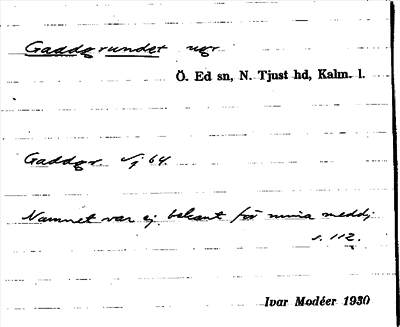 Gaddgrundet
Ö. Ed sn, N. Tjust hd, Kalm. l.
Gaddgr. Sj 64.
Namnet var ej bekant för mina meddj
s. 112.
Ivar Modéer 1930